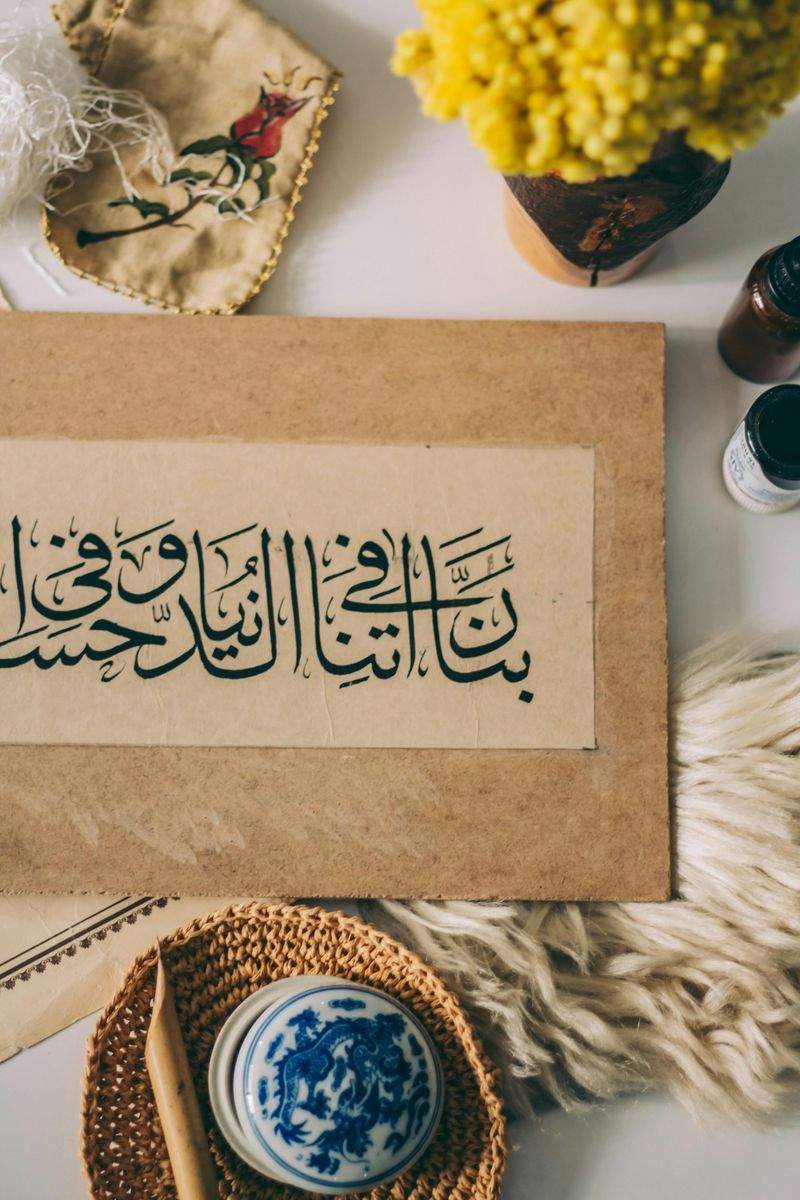 ربنا اتنا في الدنيا حسنة وفي ا